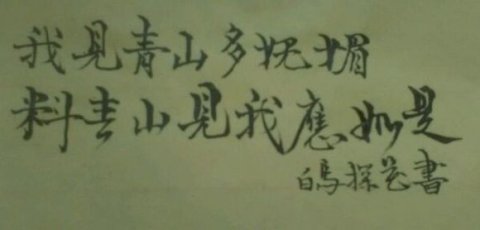 我見青山多妩媚
料青山見我應如是
白馬探花書